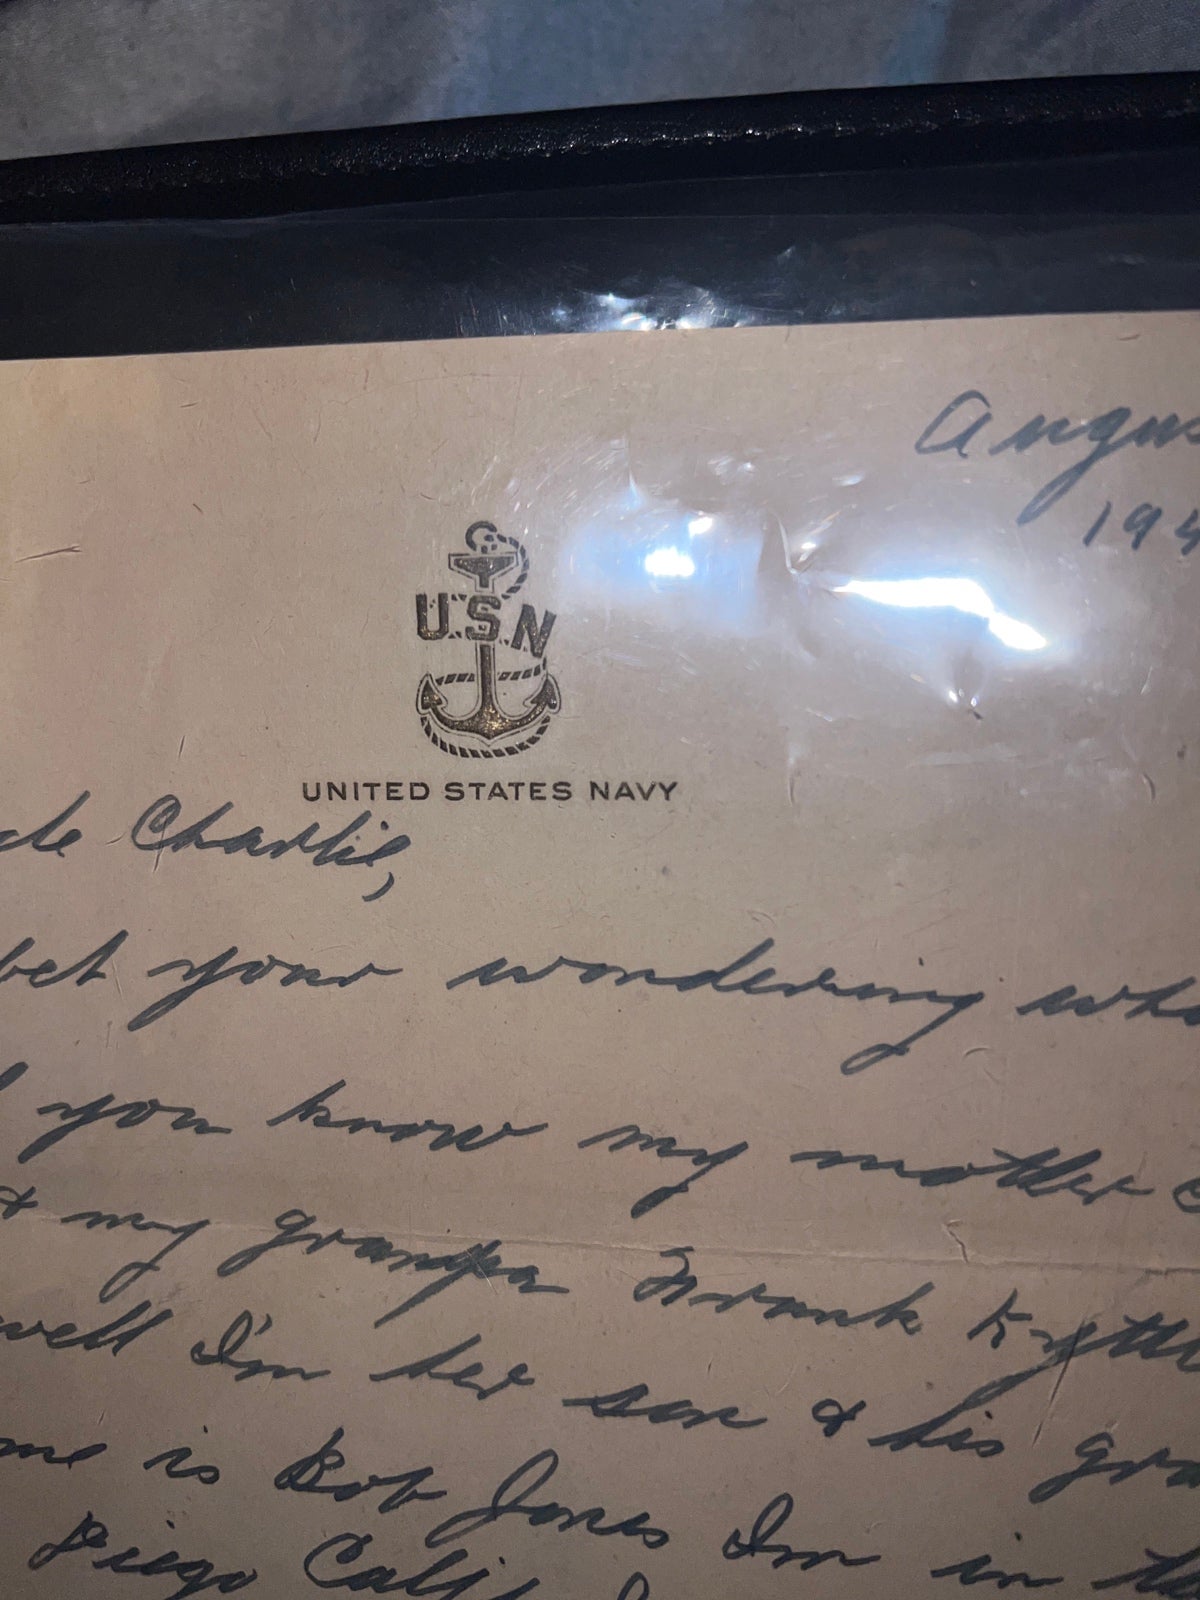 Augus
194
U.S.N
UNITED STATES NAVY
cle Charlie,
bet your wondering who
you know my mother
& my grandpa Frank
well I'm her son & his gra
me is Bob Jones I'm in the
Diego Calif